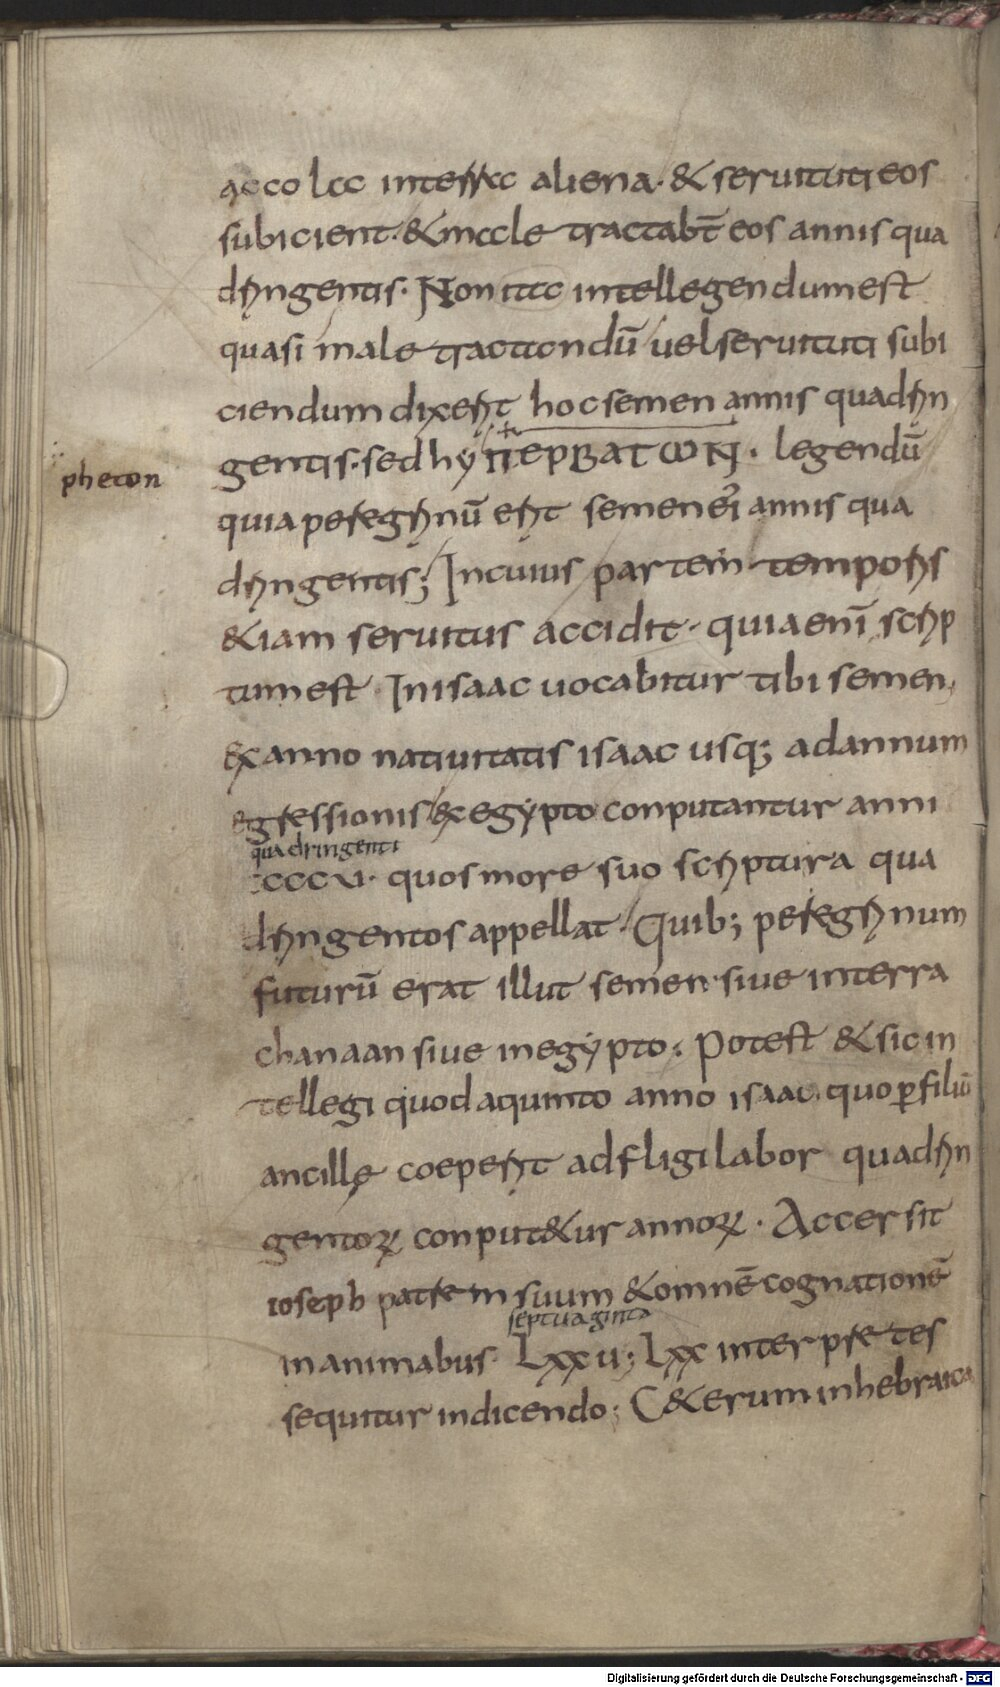 accola in terra aliena · & seruituti eos
subicient · & male tractabt̄ eos annis qua
dringentis · Non ita intellegendum est
quasi male tractandū uel seruituti subi
ciendum dixerit hoc semen annis quadrin
gentis · sed hyΠΕΡΒΑΤωΝ · legendū
pheton
quia peregrinū erit semen ei annis qua
dringentis ; In cuius partem temporis
&iam seruitus accidit · quia enī scrip
tum est · In isaac uocabitur tibi semen ,
ex anno natiuitatis isaac usq; ad annum
egressionis ex egypto conputantur anni
quadringenti
CCCCV · quos more suo scriptura qua
dringentos appellat · Quib; peregrinum
futurū erat illut semen · siue in terra
chanaan siue in egypto : Potest & sic in
tellegi quod a quinto anno isaac quo p̲ filiū
ancillę coeperit adfligi labor quadrin
gentoꝝ conput&ur annoꝝ · Accersit
ioseph patrem suum & omnē cognationē
septuaginta
in animabus · LXXV ; LXX interpretes
sequitur in dicendo : C&erum in hebraica
Digitalisierung gefördert durch die Deutsche Forschungsgemeinschaft - DFG